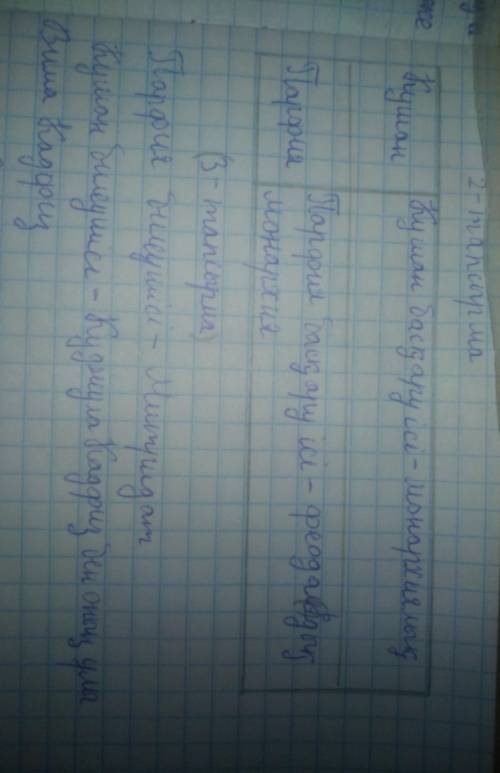 2-тапсырма
Кушан
Кушан басқару ісі - монархиялық
Парфия
Парфия басқару ісі - феодалдық
монархия
(3-тапсырма)
Парфия билеушісі - Митридат
Кушан билеушісі - Куджула Кадфиз бен оның ұлы
Вима Кадфиз